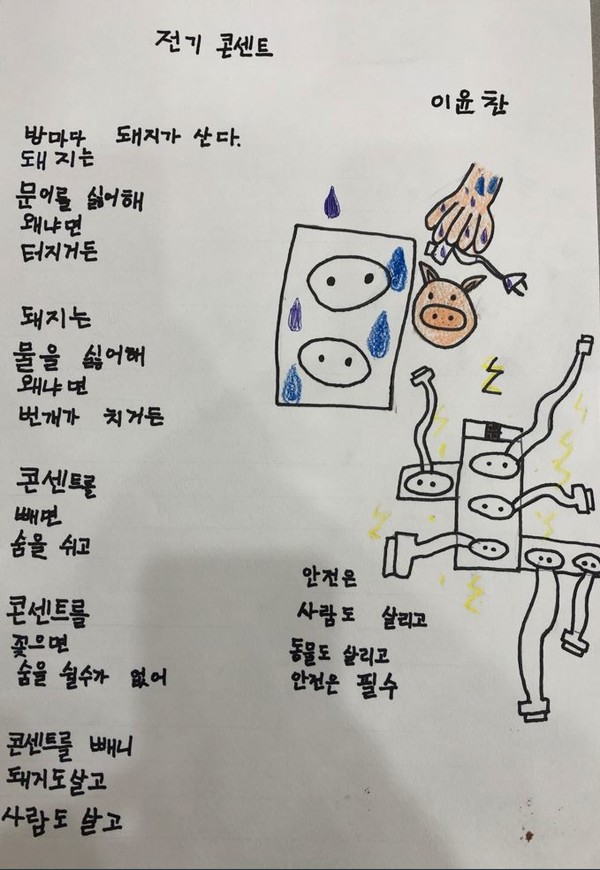 전기 콘센트
이윤찬
방마다 돼지가 산다.
돼지는
문어를 싫어해
왜냐면
터지거든
돼지는
물을 싫어해
왜냐면
번개가 치거든
콘센트를
빼면
숨을 쉬고
콘센트를
꽂으면
숨을 쉴수가 없어
콘센트를 빼니
돼지도살고
사람도 살고
안전은
사람도 살리고
동물도 살리고
안전은 필수